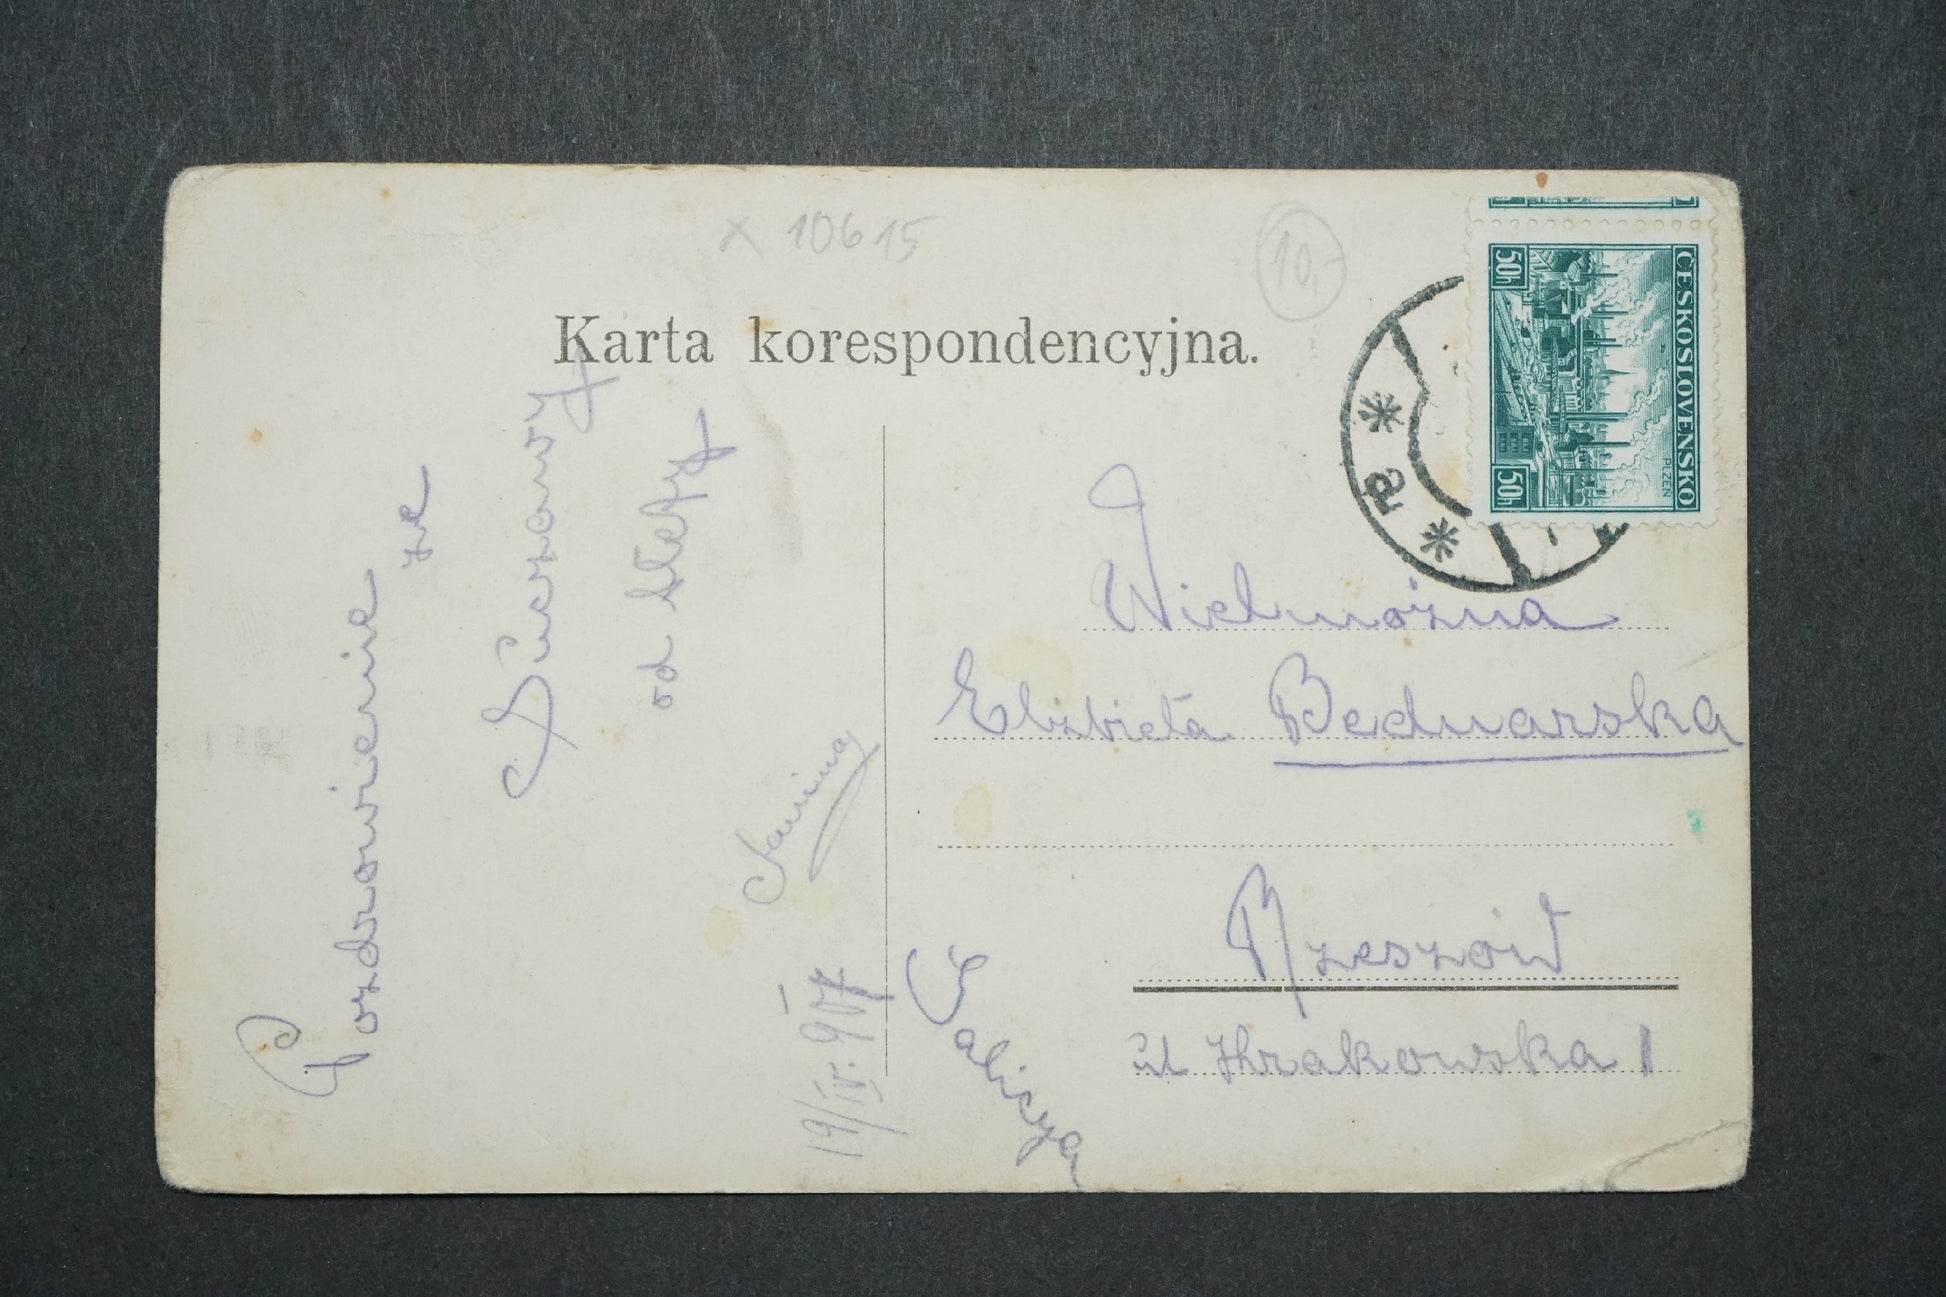 x 10615
10,-
Karta korespondencyjna.
ČESKOSLOVENSKO
50h
50h
PLZEŇ
Pozdrowienie
ze
Suczawy
od
Janiny
19/IV. 907
Wielmożna
Elżbieta Bednarska
Rzeszów
ul Krakowska 1
Galicya